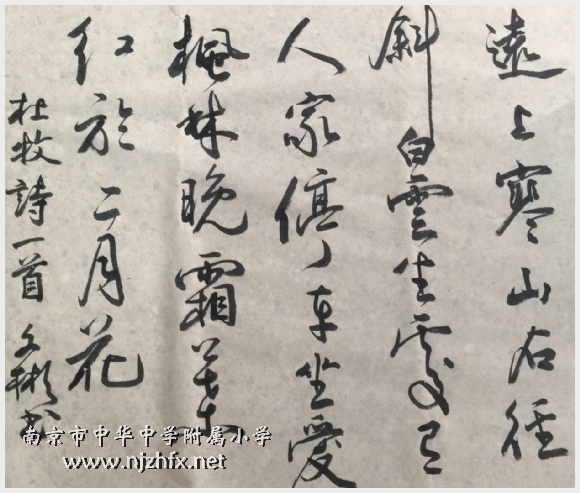 遠上寒山石徑
斜白雲生處有
人家停車坐愛
楓林晚霜葉
紅於二月花
杜牧詩一首 文彬书
南京市中华中学附属小学
www.njzhfx.net